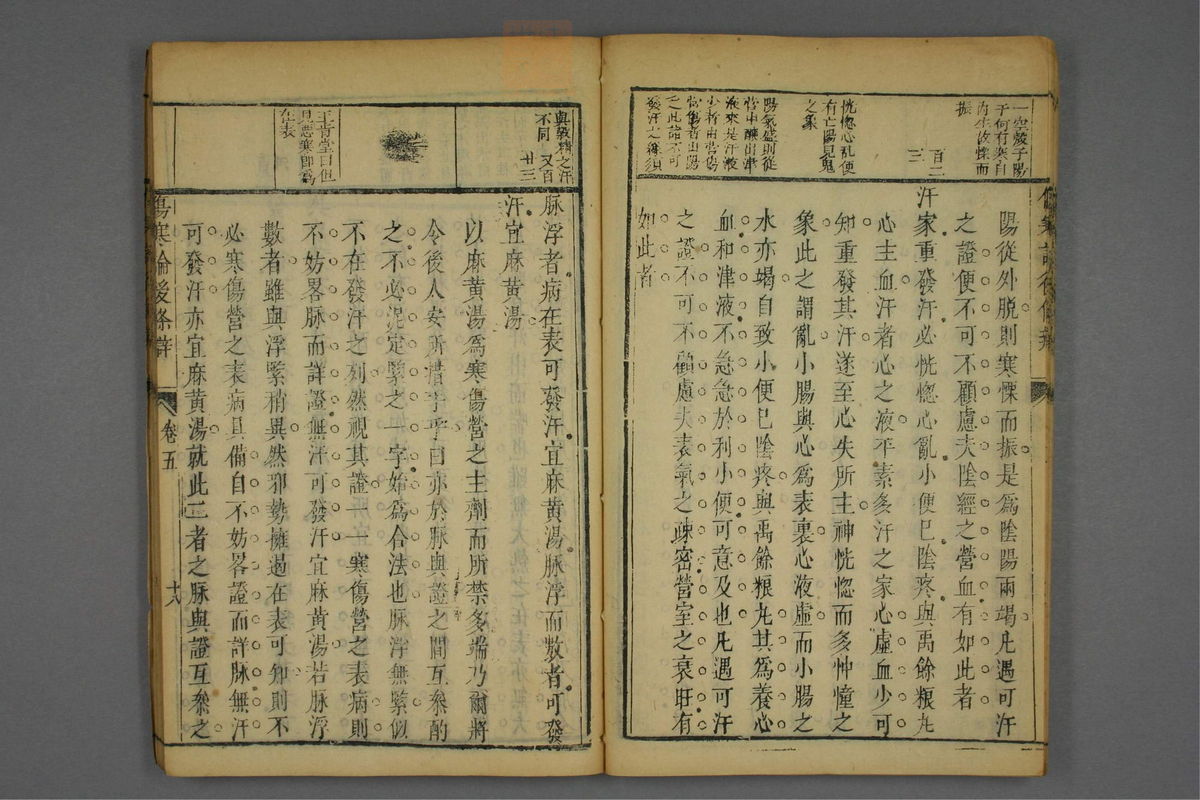 一空發子陽
于何有寒自
内生故慄而
振
百二
三
恍惚心乱便
有亡陽見鬼
之象
陽氣盛則從
營中釀出津
液來是汗液
少祈由營傷
營傷者由陽
之此諸不可
發汗之緣須
陽從外脱則寒慄而振是爲陰陽兩竭凡遇可汗
之證便不可不顧慮夫陰經之營血有如此者
汗家重發汗必恍惚心亂小便已陰疼與禹餘粮丸
心主血汗者心之液平素多汗之家心虛血少可
知重發其汗遂至心失所主神恍惚而多忡憧之
象此之謂亂小腸與心爲表裏心液虛而小腸之
水亦竭自致小便已陰疼與禹餘粮丸其爲養心
血和津液不急急於利小便可意及也凡遇可汗
之證不可不顧慮夫表氣之疎密營室之衰旺有
如此者
與敦精之汗
不同 又百
廿三
王肯堂曰但
見惡寒即爲
在表
脉浮者病在表可發汗宜麻黄湯脉浮而數者可發
汗宜麻黄湯
以麻黄湯爲寒傷營之主劑而所禁多端乃爾將
令後人安所措手乎曰亦於脉與證之間互叅酌
之不必泥定緊之一字始爲合法也脉浮無緊似
不在發汗之列然視其證一一寒傷營之表病則
不妨畧脉而詳證無汗可發汗宜麻黄湯若脉浮
數者雖與浮緊稍異然邪勢擁遏在表可知則不
必寒傷營之表病具備自不妨畧證而詳脉無汗
可發汗亦宜麻黄湯就此二者之脉與證互叅之
傷寒論後條辨
卷五
十六